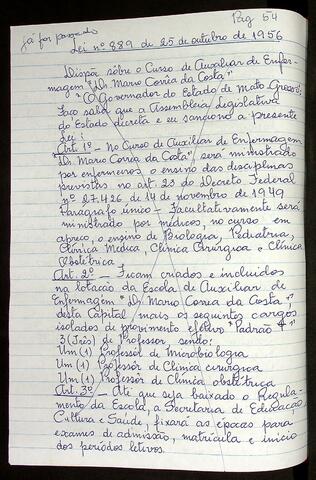 Pag 54
já foi passado
Lei nº 889 de 25 de outubro de 1956
Dispõe sôbre o Curso de Auxiliar de Enfer-
magem "Dr. Mario Corrêa da Costa"
"O Governador do Estado de Mato Grosso:
Faço saber que a Assembléia Legislativa
do Estado decreta e eu sanciono a presente
Lei:
Art. 1º - No Curso de Auxiliar de Enfermagem
"Dr. Mario Corrêa da Costa" será ministrado
por enfermeiros o ensino das disciplinas
previstas no art. 23 do Decreto Federal
nº 27.426, de 14 de novembro de 1949
Paragrafo único - Facultativamente será
ministrado por médicos, no curso em
apreço, o ensino de Biologia, Pediatria,
Clínica Médica, Clínica Cirúrgica e Clínica
Obstetrica.
Art. 2º - Ficam criados e incluidos
na lotação da Escola de Auxiliar de
Enfermagem "Dr. Mario Correa da Costa",
desta Capital mais os seguintes cargos
isolados de provimento efetivo "Padrão
3 (Três) de Professor, sendo:
Um (1) Professor de Microbiologia
Um (1) Professor de Clinica cirurgica
Um (1) Professor de Clinica obstétrica
Art. 3º - Até que seja baixado o Regula-
mento da Escola, a Secretaria de Educação,
Cultura e Saúde, fixará as épocas para
exames de admissão, matricula e inicio
dos periodos letivos.